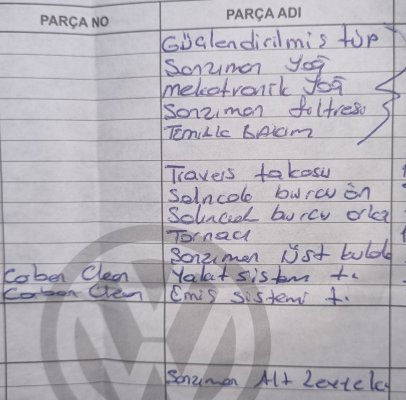 PARÇA NO PARÇA ADI
Güçlendirilmiş tüp
Sanzıman Yağ
mekatronik Yağ
Sanzıman filtresi
Temizlik Bakım
Travers takozu
Salıncak burcu ön
Salıncak burcu arka
Tornacı
Sanzıman Üst
Carbon Clean Yakıt sistem t.
Carbon Clean Emiş sistemi t.
Sanzıman Alt